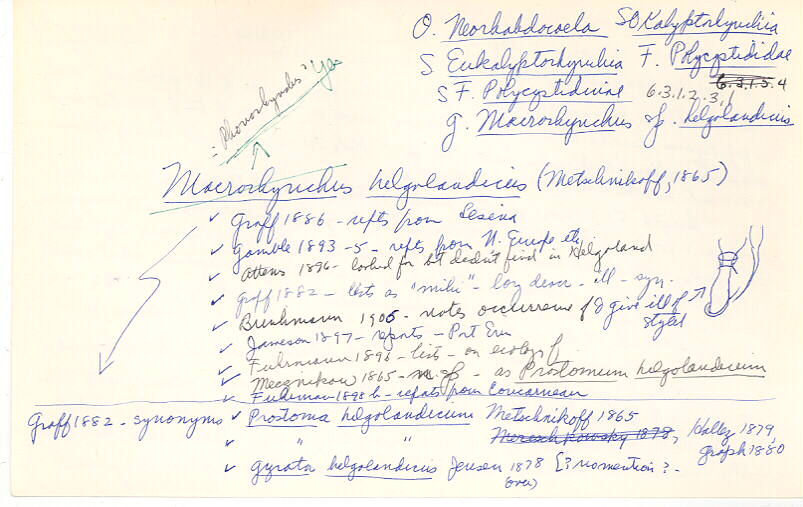 O. Neorhabdocoela SO Kalyptorhynchia
S Eukalyptorhynchia F. Polycystididae
6.3.1.5.4
SF. Polycystidinae 6.3.1.2.3.1
g. Macrorhynchus sp. helgolandicus
= Phonorhynchus? Yes
Macrorhynchus helgolandicus (Metschnikoff, 1865)
✓ Graff 1886 - repts from Lesina
✓ Gamble 1893-5 - repts from N. Europe etc
✓ Attems 1896 - looked for but didn't find in Helgoland
✓ Graff 1882 - lists as "mihi" - long descr - ill - syn.
✓ Brinkmann 1905 - notes occurrence of & give ill of stylet
✓ Jameson 1897 - reports - Port Erin
✓ Fuhrmann 1896 - lists - on ecology of
✓ Mecznikow 1865 - n. sp - as Prostomum helgolandicum
✓ Fuhrman 1898b - repts from Concarneau
Graff 1882 - synonyms ✓ Prostoma helgolandicum Metschnikoff 1865
✓ " " Mereschkowsky 1878, Hallez 1879, Graff 1880
✓ Gyrator helgolandicus Jensen 1878 [? no mention ? -
over)